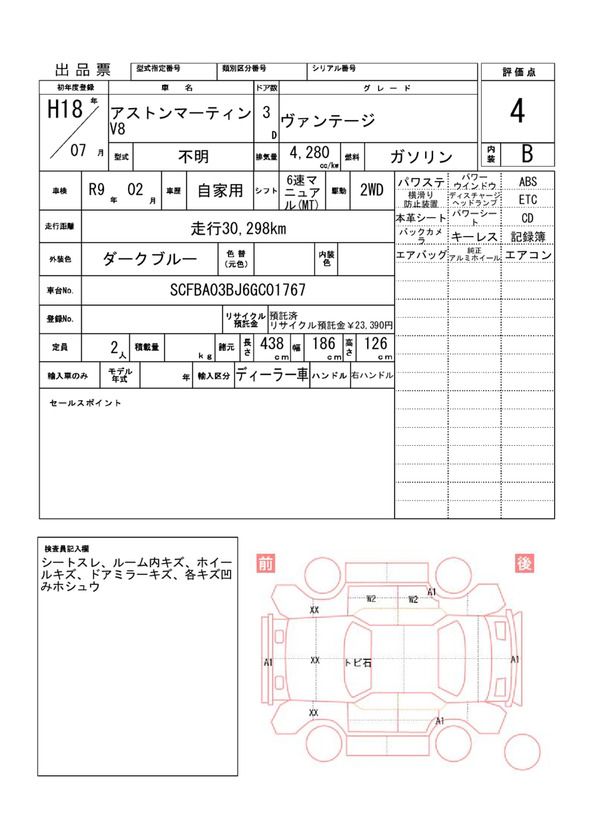 出品票
型式指定番号
類別区分番号
シリアル番号
評価点
初年度登録
車 名
ドア数
グ レ ー ド
H18 年
07 月
アストンマーティン
V8
3
D
ヴァンテージ
4
型式
不明
排気量
4,280
cc/kw
燃料
ガソリン
内装
B
車検
R9 年 02 月
車歴
自家用
シフト
6速マ
ニュア
ル(MT)
駆動
2WD
パワステ
パワー
ウインドウ
ABS
横滑り
防止装置
ディスチャージ
ヘッドランプ
ETC
走行距離
走行30,298km
本革シート
パワーシー
ト
CD
バックカメ
ラ
キーレス
記録簿
外装色
ダークブルー
色替
(元色)
内装
色
エアバッグ
純正
アルミホイール
エアコン
車台No.
SCFBA03BJ6GC01767
登録No.
リサイクル
預託金
預託済
リサイクル預託金¥23,390円
定員
2人
積載量
kg
諸元
長さ
438
cm
幅
186
cm
高さ
126
cm
輸入車のみ
モデル
年式
年
輸入区分
ディーラー車
ハンドル
右ハンドル
セールスポイント
検査員記入欄
シートスレ、ルーム内キズ、ホイー
ルキズ、ドアミラーキズ、各キズ凹
みホシュウ
前
後
W2
W2
A1
XX
A1
XX
トビ石
A1
XX
A1